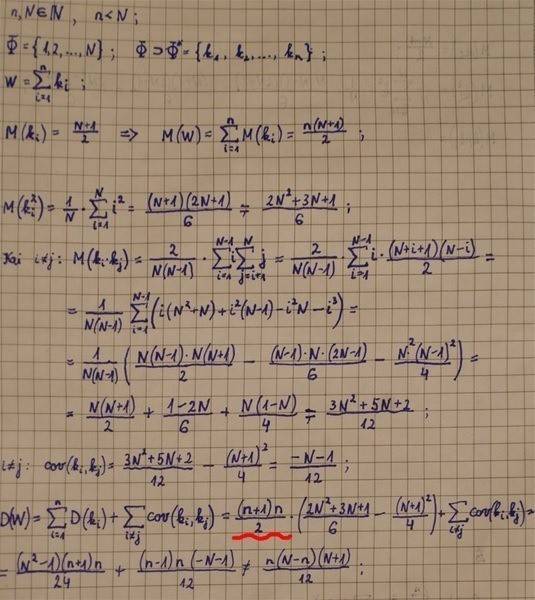 n, N ∈ ℕ , n < N ;
Φ = {1, 2, ..., N} ; Φ ⊃ Φ* = {k₁, k₂, ..., kₙ} ;
W = ∑_{i=1}^{n} kᵢ ;
M(kᵢ) = (N+1)/2 => M(W) = ∑_{i=1}^{n} M(kᵢ) = n(N+1)/2 ;
M(kᵢ²) = 1/N · ∑_{i=1}^{N} i² = (N+1)(2N+1)/6 = (2N²+3N+1)/6 ;
Kai i≠j : M(kᵢ·kⱼ) = 2/(N(N-1)) · ∑_{i=1}^{N-1} i ∑_{j=i+1}^{N} j = 2/(N(N-1)) · ∑_{i=1}^{N-1} i · (N+i+1)(N-i)/2 =
= 1/(N(N-1)) ∑_{i=1}^{N-1} (i(N²+N) + i²(N-1) - i²N - i³) =
= 1/(N(N-1)) ( N(N-1)·N(N+1)/2 - (N-1)·N·(2N-1)/6 - N²(N-1)²/4 ) =
= N(N+1)/2 + (1-2N)/6 + N(1-N)/4 = (3N²+5N+2)/12 ;
i≠j : cov(kᵢ, kⱼ) = (3N²+5N+2)/12 - (N+1)²/4 = (-N-1)/12 ;
D(W) = ∑_{i=1}^{n} D(kᵢ) + ∑_{i≠j} cov(kᵢ, kⱼ) = (n+1)n/2 · ( (2N²+3N+1)/6 - (N+1)²/4 ) + ∑_{i≠j} cov(kᵢ, kⱼ) =
= (N²-1)(n+1)n/24 + (n-1)n(-N-1)/12 ≠ n(N-n)(N+1)/12 ;